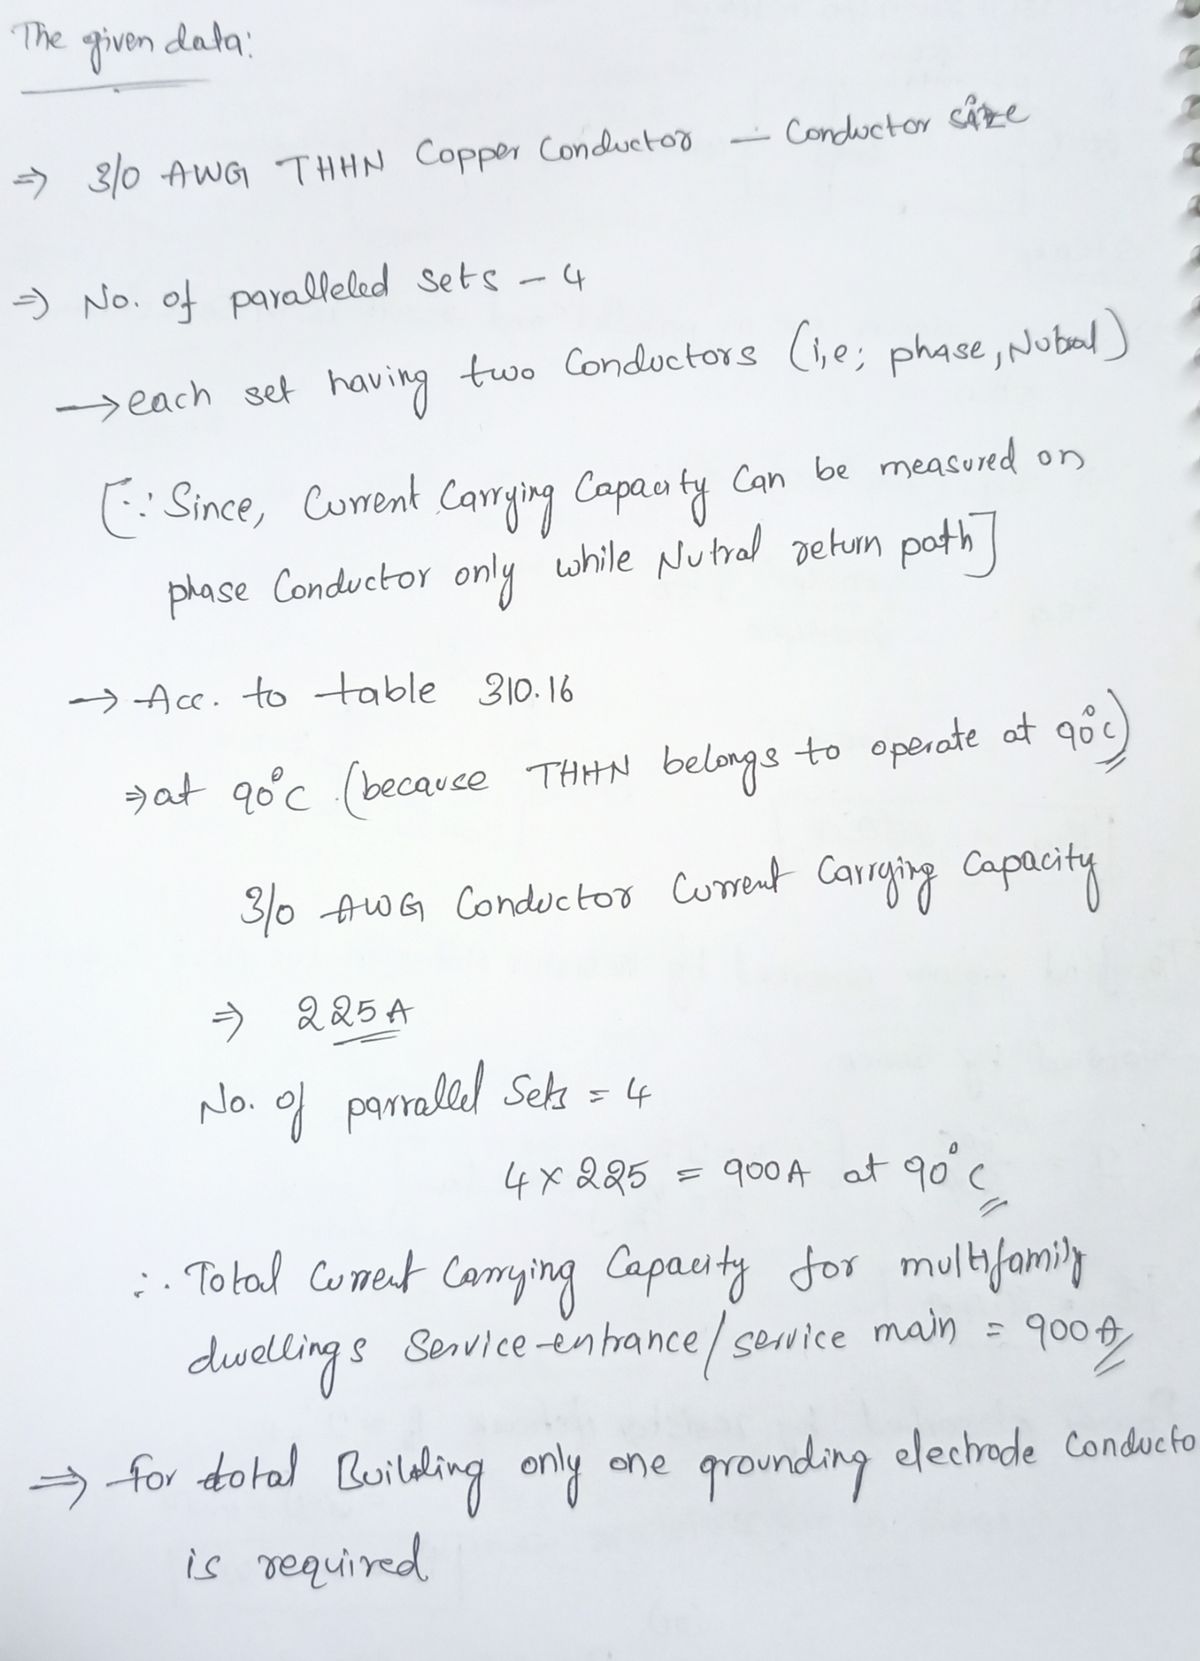 The given data:
⇒ 3/0 AWG THHN Copper Conductor — Conductor size
⇒ No. of paralleled sets - 4
→ each set having two Conductors (i,e; phase, Nutral)
[∵ Since, Current Carrying Capacity Can be measured on
phase Conductor only while Nutral return path]
→ Acc. to table 310.16
⇒ at 90°C (because THHN belongs to operate at 90°C)
3/0 AWG Conductor Current Carrying Capacity
⇒ 225A
No. of parralled Sets = 4
4 × 225 = 900A at 90°C
∴ Total Current Carrying Capacity for multifamily
dwellings Service-entrance/service main = 900A
⇒ for total Building only one grounding electrode Conducto
is required